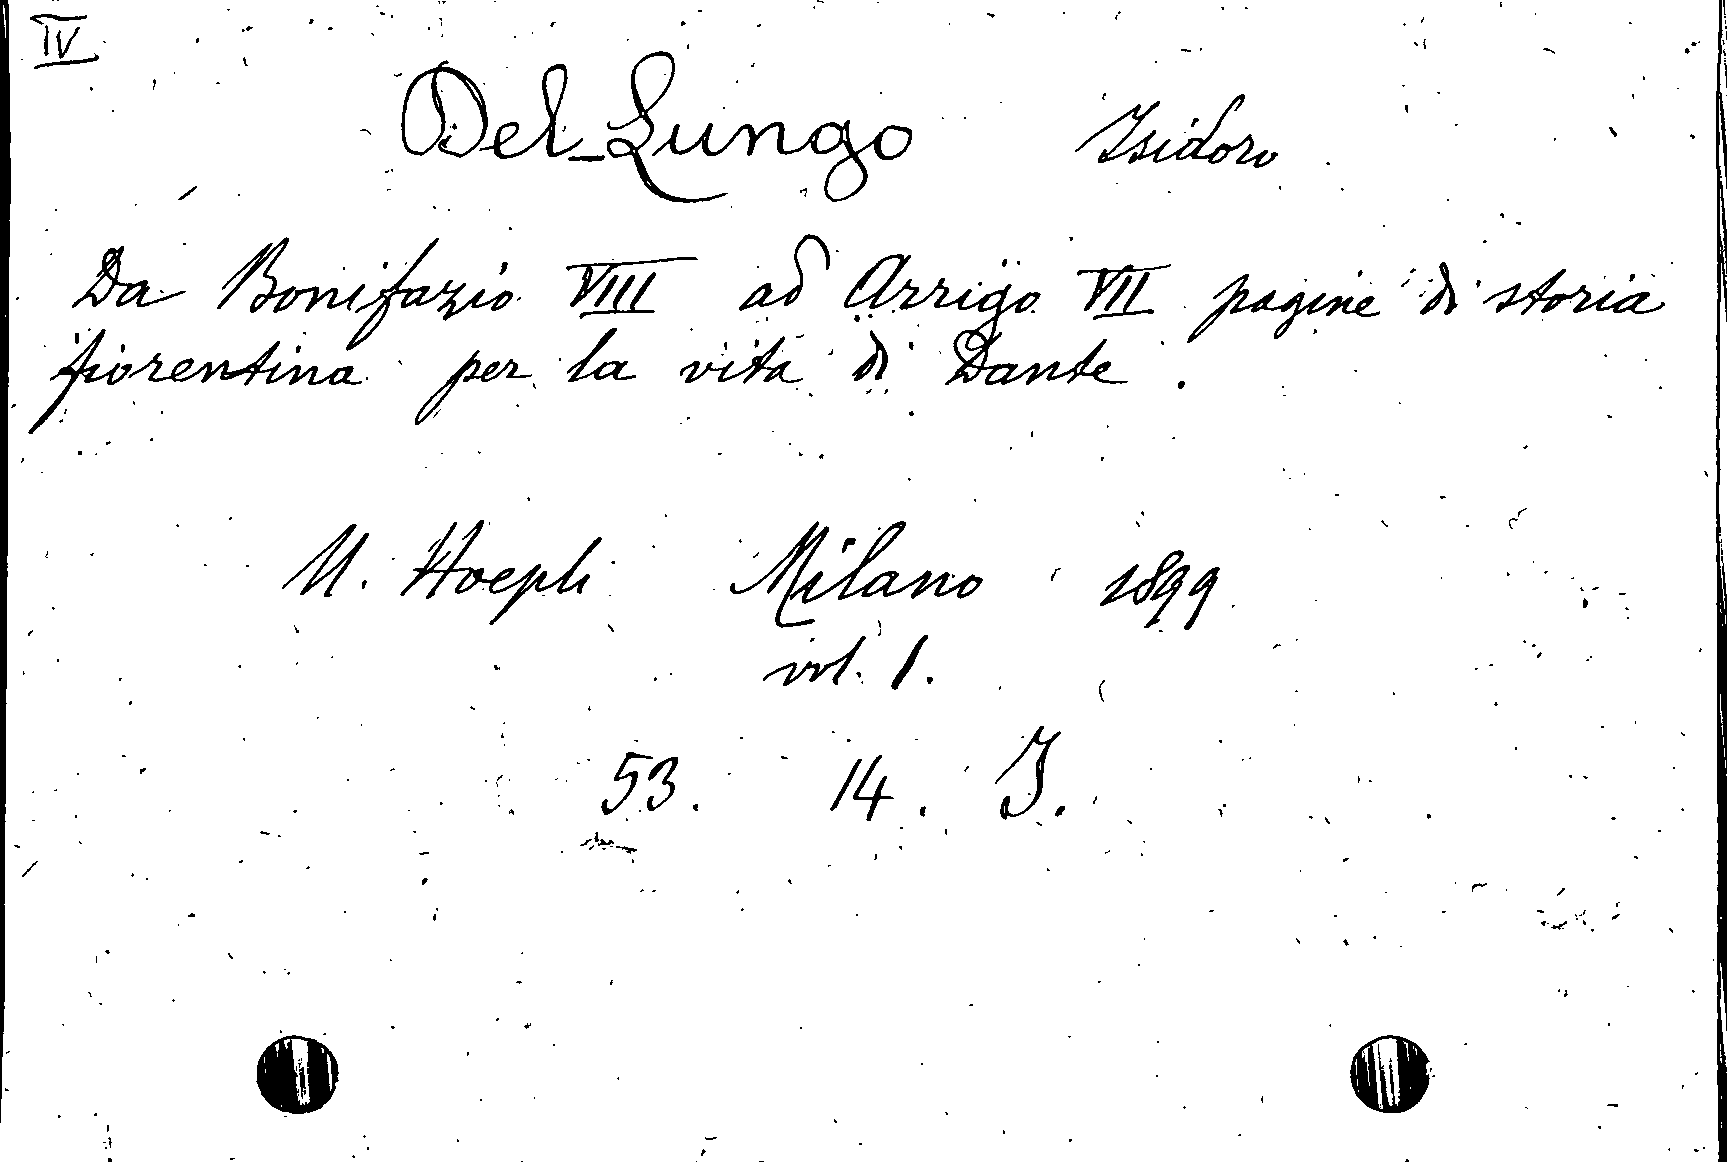 IV
Del-Lungo Isidoro
Da Bonifazio VIII ad Arrigo VII pagine di storia
fiorentina per la vita di Dante.
U. Hoepli Milano 1899
vol. 1.
53. 14. I.